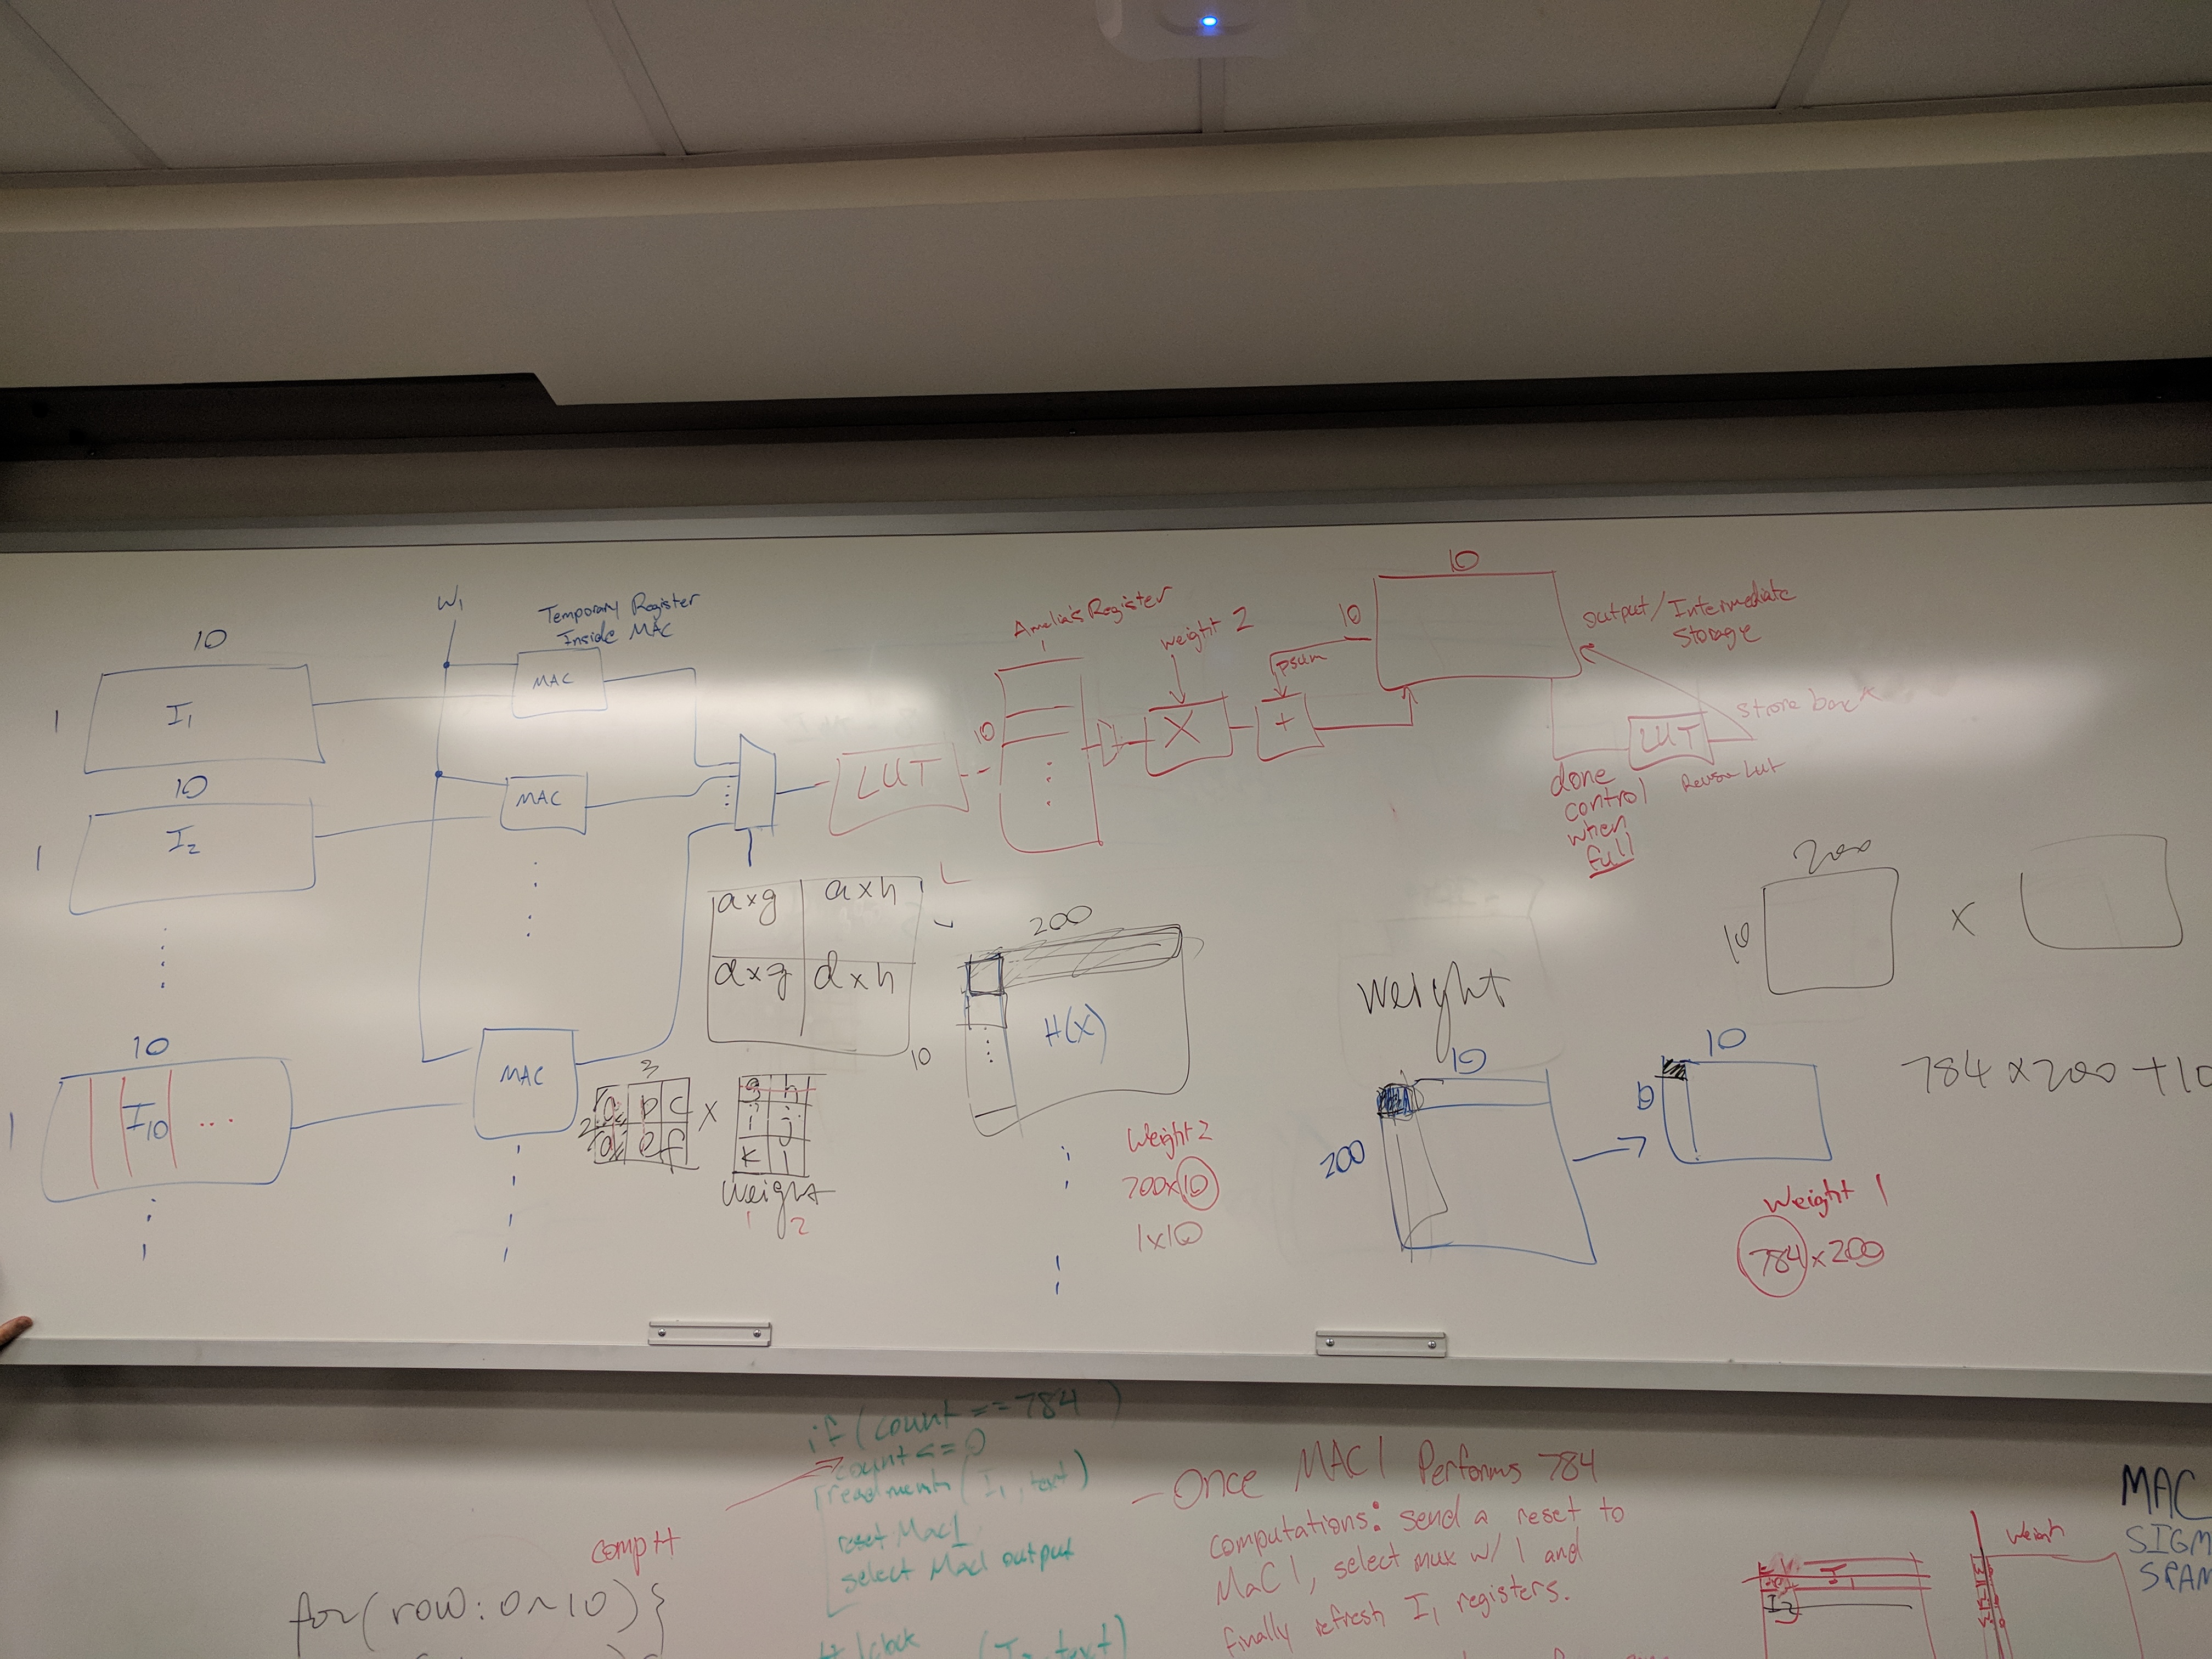 10
1
I₁
10
1
I₂
10
1
I₁₀ ...
W₁
Temporary Register
Inside MAC
MAC
MAC
MAC
LUT
Amelia's Register
1
10
weight 2
X
psum
+
10
10
output/Intermediate
Storage
LUT
store back
Reuse Lut
done
control
when
full
axg
axh
dxg
dxh
3
2
a b c
d e f
X
g h
i j
k l
Weight
1 2
200
10
H(X)
Weight 2
200x10
1x10
Weight
10
200
10
10
Weight 1
784x200
200
10
X
784 x 200 + 10
if (count == 784)
count <= 0
readmemh(I₁, text)
reset Mac1
select Mac1 output
comp H
for(row: 0~10){
- Once MAC1 Performs 784
computations: send a reset to
MaC1, select mux w/ 1 and
finally refresh I₁ registers.
I₁
I₂
Weigh
MAC
SIGM